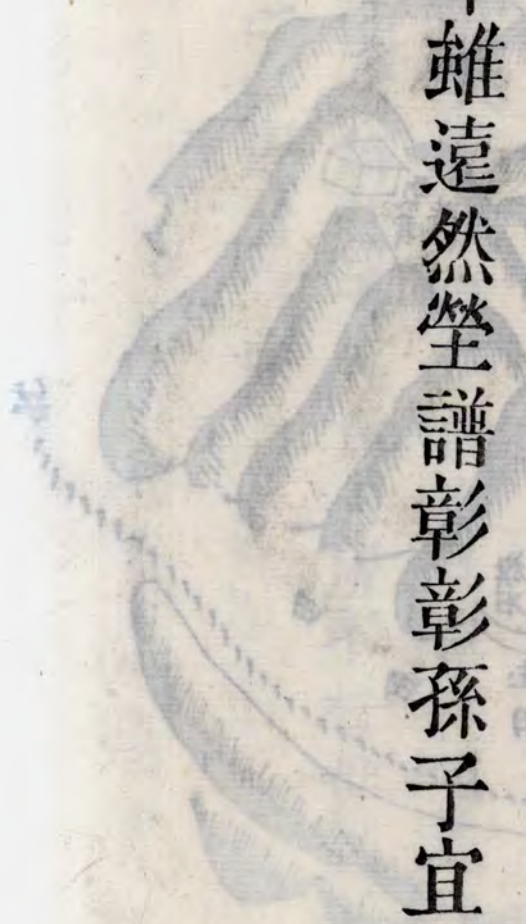 雖遠然塋譜彰彰孫子宜